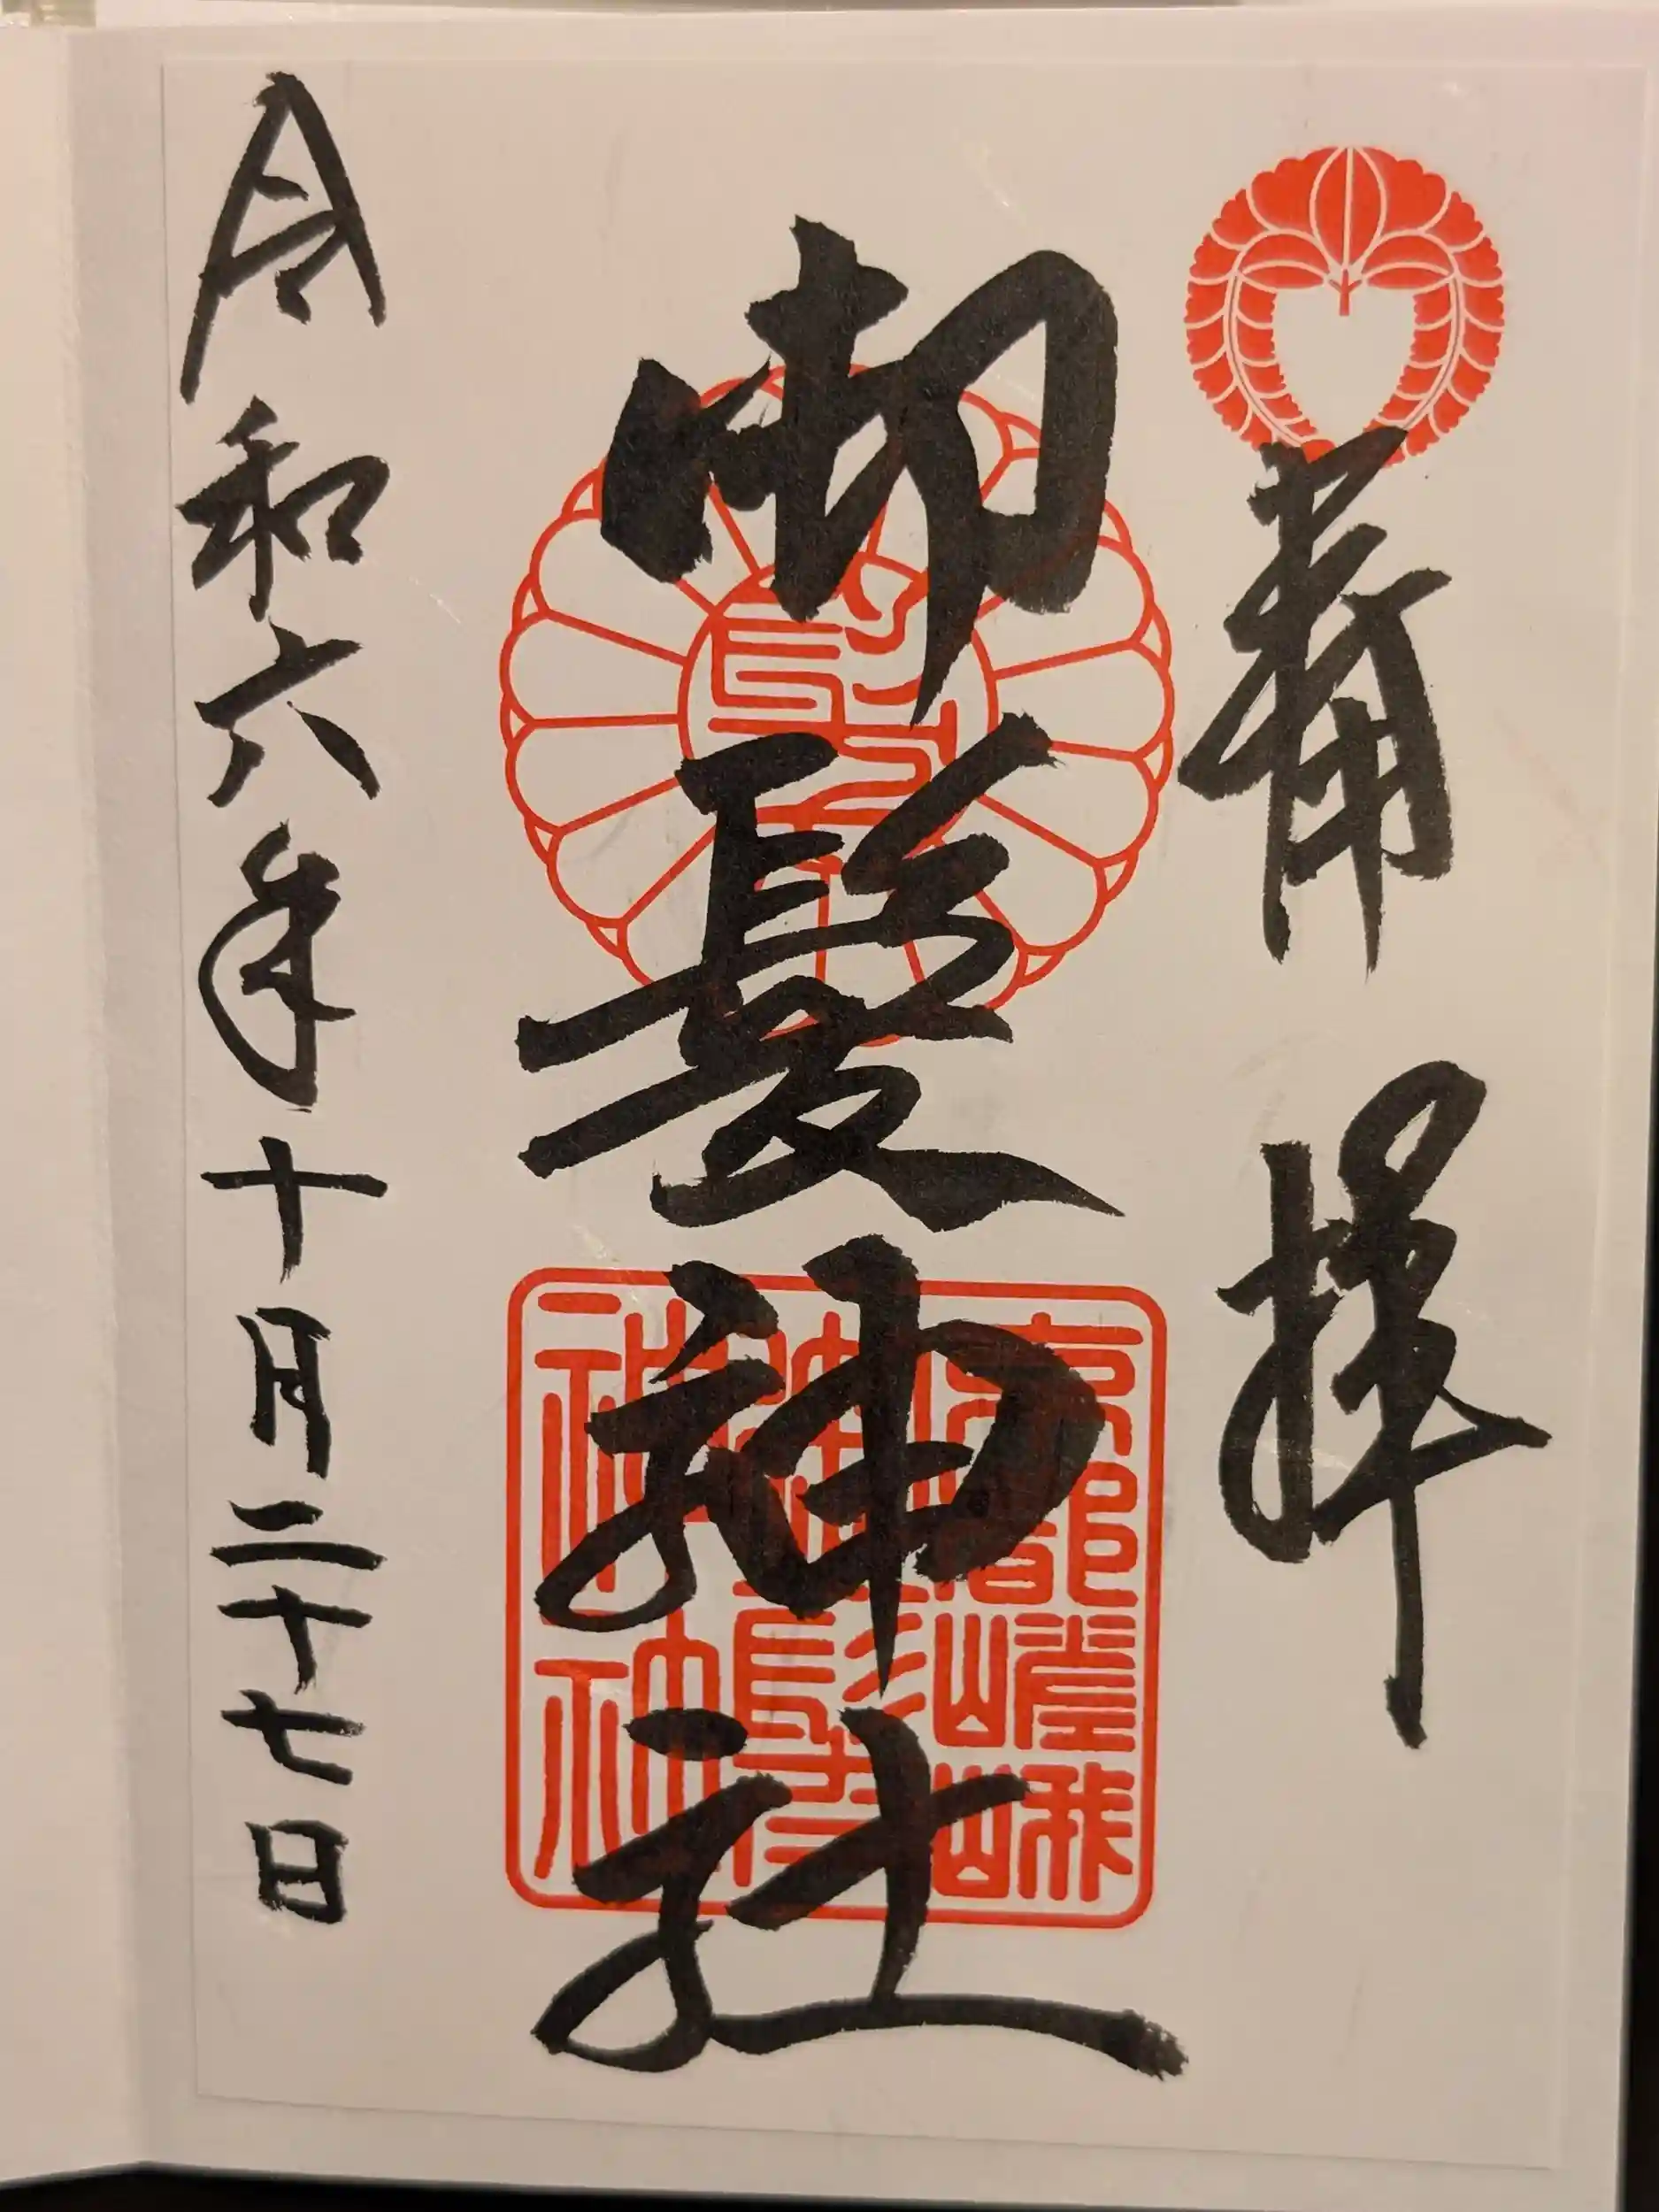 拝
御髪神社
京都嵯峨
御髪
神社
令和六年十月二十七日